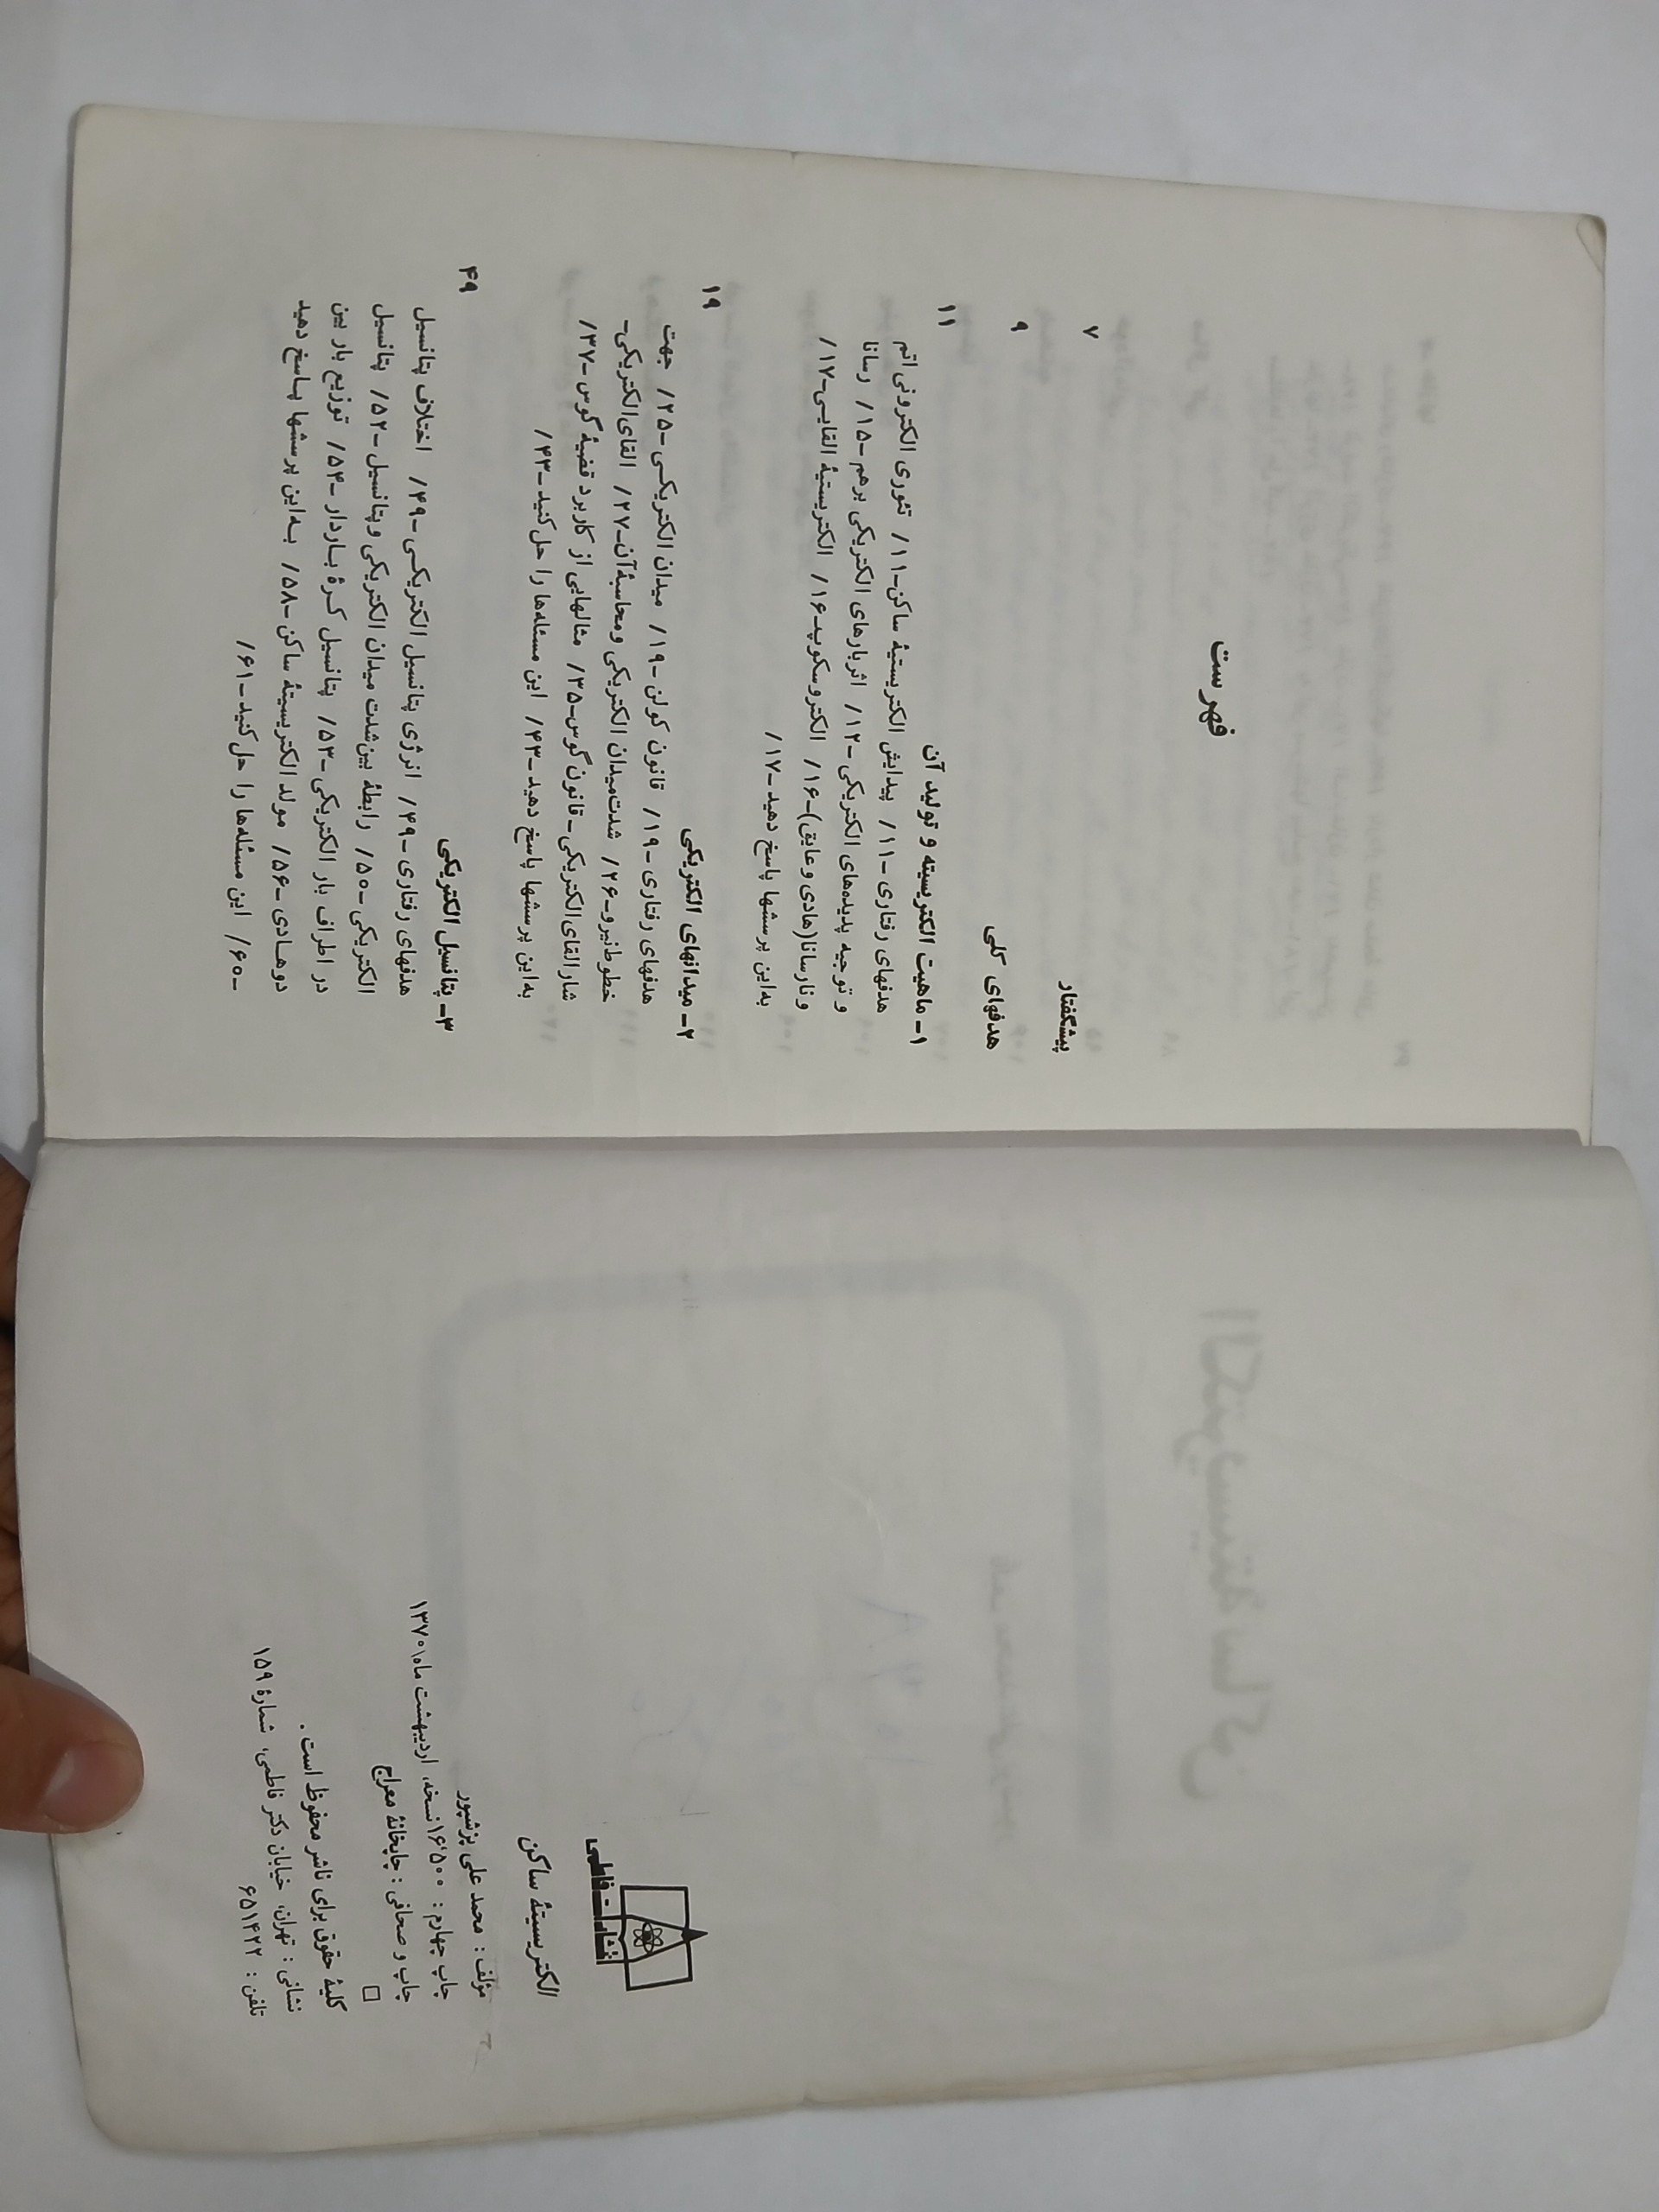 فهرست
پیشگفتار ۷
هدفهای کلی ۹
۱- ماهیت الکتریسیته و تولید آن ۱۱
هدفهای رفتاری -۱۱/ پیدایش الکتریستیهٔ ساکن-۱۱/ تئوری الکترونی اتم
و توجیه پدیده‌های الکتریکی -۱۲/ اثر بارهای الکتریکی برهم -۱۵/ رسانا
و نارسانا(هادی و عایق)-۱۶/ الکتروسکوپ-۱۶/ الکتریستیهٔ القایی-۱۷/
به‌این پرسشها پاسخ دهید-۱۷/
۲- میدانهای الکتریکی ۱۹
هدفهای رفتاری -۱۹/ قانون کولن -۱۹/ میدان الکتریکی -۲۵/ جهت
خطوط نیرو-۲۶/ شدت‌میدان الکتریکی ومحاسبهٔ‌آن-۲۷/ القای‌الکتریکی-
شار القای‌الکتریکی-قانون گوس-۳۵/ مثالهایی از کاربرد قضیهٔ گوس-۳۷/
به‌این پرسشها پاسخ دهید-۴۳/ این مسئله‌ها را حل کنید-۴۳/
۳- پتانسیل الکتریکی ۴۹
هدفهای رفتاری -۴۹/ انرژی پتانسیل الکتریکی -۴۹/ اختلاف پتانسیل
الکتریکی-۵۰/ رابطهٔ بین‌شدت میدان الکتریکی و پتانسیل-۵۲/ پتانسیل
در اطراف بار الکتریکی-۵۳/ پتانسیل کرهٔ باردار -۵۴/ توزیع بار بین
دوهادی -۵۶/ مولد الکتریسیتهٔ ساکن -۵۸/ به‌این پرسشها پاسخ دهید
-۶۰/ این مسئله‌ها را حل کنید-۶۱/
انتشارات فاطمی
الکتریسیتهٔ ساکن
مؤلف: محمد علی پزشپور
چاپ چهارم: ۱۶٬۵۰۰نسخه، اردیبهشت ماه ۱۳۷۰
چاپ و صحافی: چاپخانهٔ معراج
کلیهٔ حقوق برای ناشر محفوظ است.
نشانی: تهران، خیابان دکتر فاطمی، شمارهٔ ۱۵۹
تلفن: ۶۵۱۴۲۲